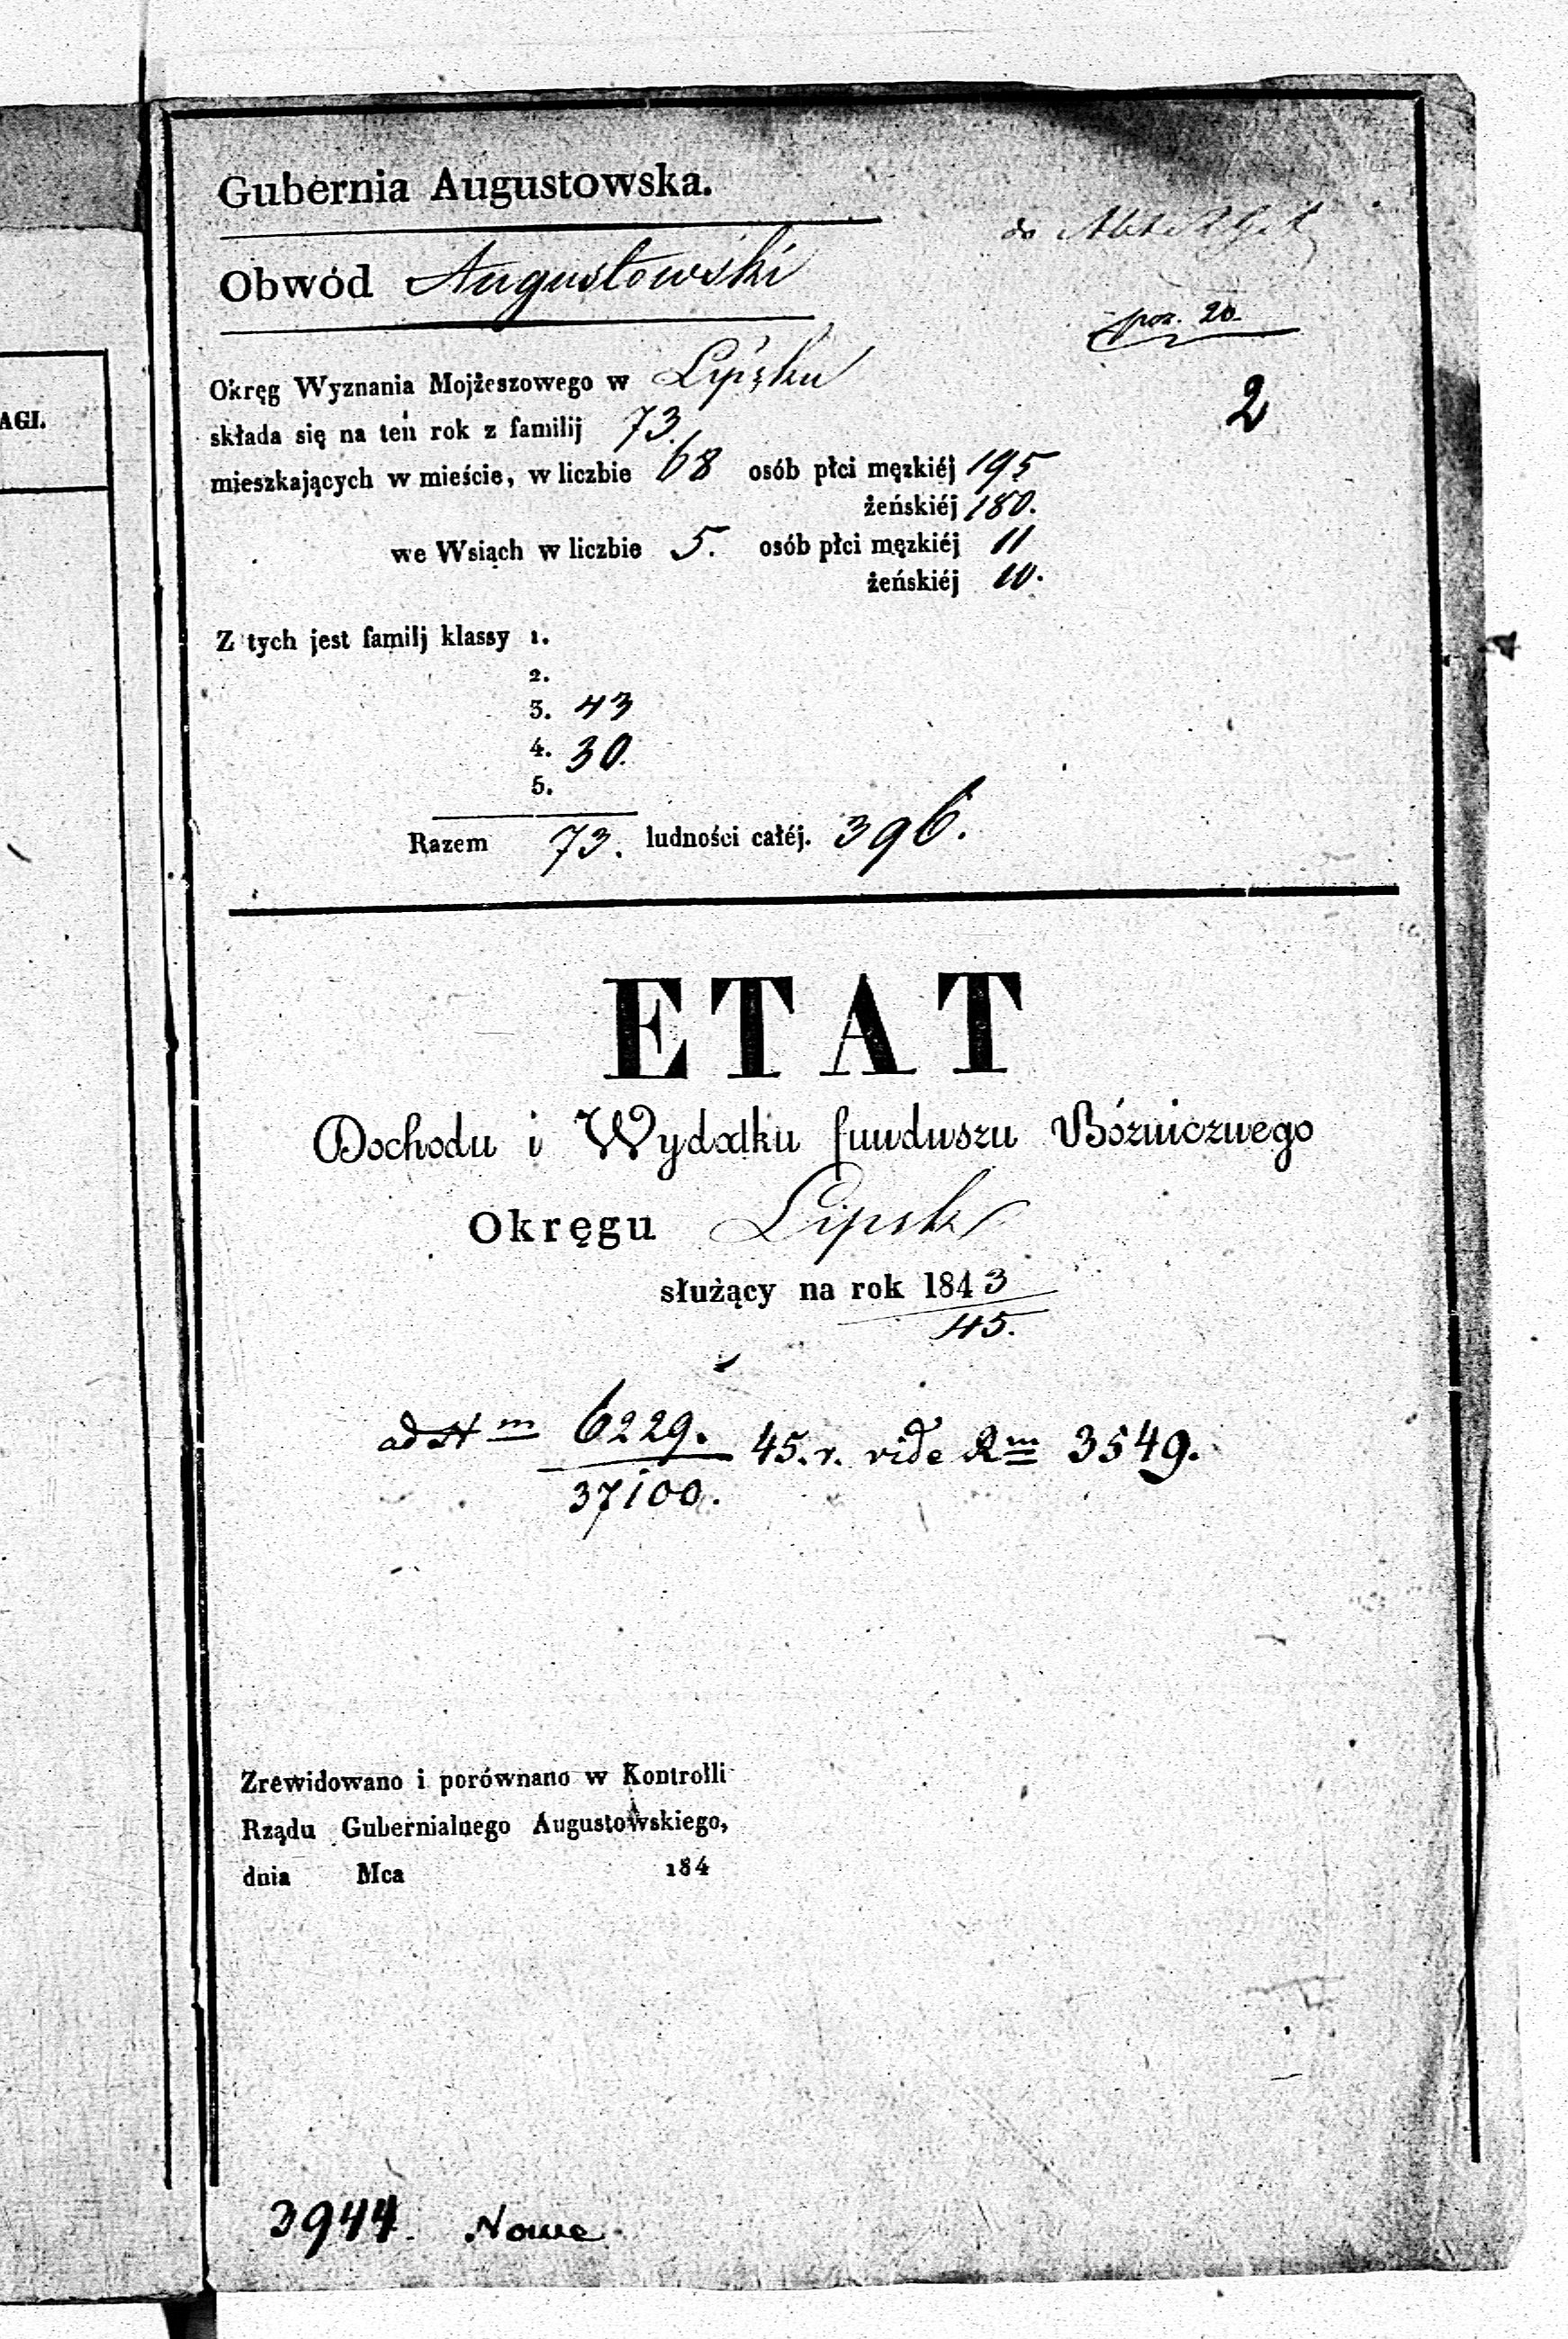 AGI.
Gubernia Augustowska.
do
Obwód Augustowski
poz. 20.
Okręg Wyznania Mojżeszowego w Lipsku
2
składa się na ten rok z familij 73.
mieszkających w mieście, w liczbie 68 osób płci męzkiéj 195
żeńskiéj 180.
we Wsiąch w liczbie 5. osób płci męzkiéj 11
żeńskiéj 10.
Z tych jest familj klassy 1.
2.
3. 43
4. 30.
5.
Razem 73. ludności całéj. 396.
ETAT
Dochodu i Wydatku funduszu Bóźnicznego
Okręgu Lipsk
służący na rok 1843
45.
ad N m 6229. 45. r. vide R m 3549.
37100.
Zrewidowano i porównano w Kontrolli
Rządu Gubernialnego Augustowskiego,
dnia Mca 184
3944. Nowe.